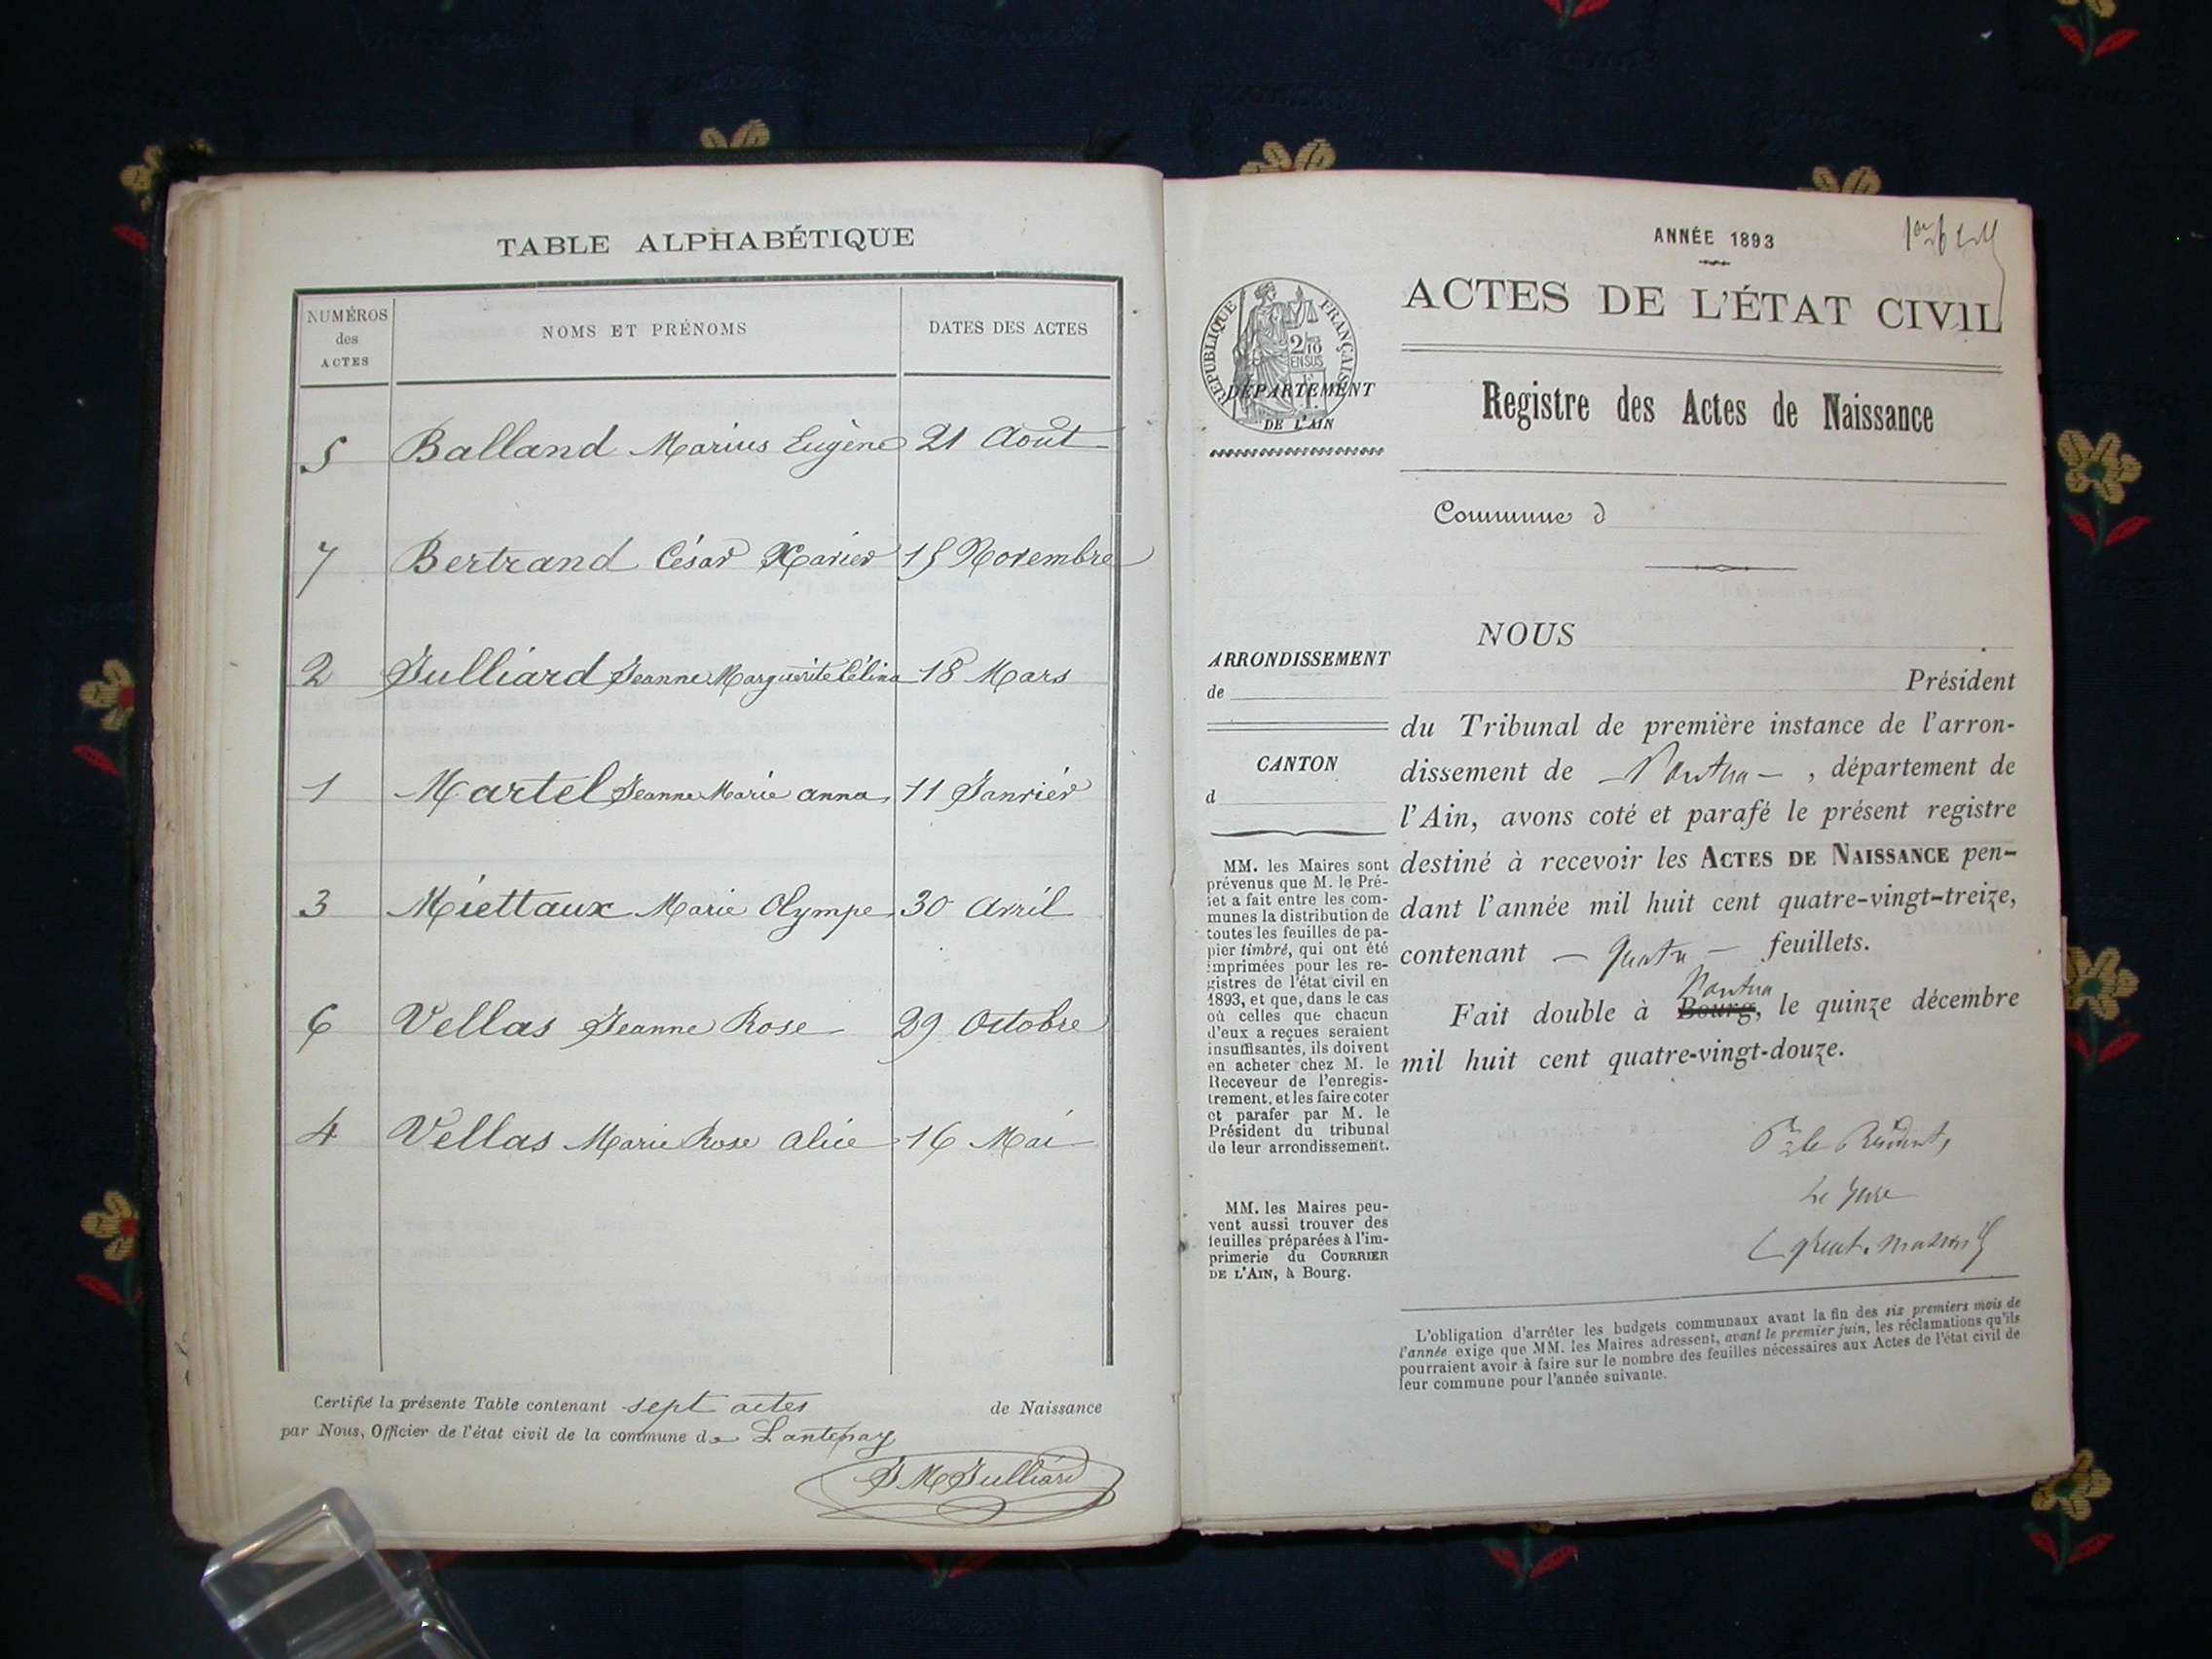 TABLE ALPHABÉTIQUE
NUMÉROS
des
ACTES
NOMS ET PRÉNOMS
DATES DES ACTES
5 Balland Marius Eugène 21 Août
7 Bertrand César Xavier 15 Novembre
2 Julliard Jeanne Marguerite Célina 18 Mars
1 Martel Jeanne Marie anna 11 Janvier
3 Miettaux Marie Olympe 30 Avril
6 Vellas Jeanne Rose 29 Octobre
4 Vellas Marie Rose Alice 16 Mai
Certifié la présente Table contenant sept actes de Naissance
par Nous, Officier de l'état civil de la commune de Lantenay
J M Julliard
ANNÉE 1893
ACTES DE L'ÉTAT CIVIL
RÉPUBLIQUE FRANÇAISE
2/10
EN SUS
DÉPARTEMENT
DE L'AIN
Registre des Actes de Naissance
Commune d
NOUS
Président
du Tribunal de première instance de l'arron-
dissement de Nantua, département de
l'Ain, avons coté et parafé le présent registre
destiné à recevoir les ACTES DE NAISSANCE pen-
dant l'année mil huit cent quatre-vingt-treize,
contenant quatre feuillets.
Nantua
Fait double à Bourg, le quinze décembre
mil huit cent quatre-vingt-douze.
Pr le Président,
Le Juge
ARRONDISSEMENT
de
CANTON
d
MM. les Maires sont
prévenus que M. le Pré-
fet a fait entre les com-
munes la distribution de
toutes les feuilles de pa-
pier timbré, qui ont été
imprimées pour les re-
gistres de l'état civil en
1893, et que, dans le cas
où celles que chacun
d'eux a reçues seraient
insuffisantes, ils doivent
en acheter chez M. le
Receveur de l'enregis-
trement, et les faire coter
et parafer par M. le
Président du tribunal
de leur arrondissement.
MM. les Maires peu-
vent aussi trouver des
feuilles préparées à l'im-
primerie du COURRIER
DE L'AIN, à Bourg.
L'obligation d'arrêter les budgets communaux avant la fin des six premiers mois de
l'année exige que MM. les Maires adressent, avant le premier juin, les réclamations qu'ils
pourraient avoir à faire sur le nombre des feuilles nécessaires aux Actes de l'état civil de
leur commune pour l'année suivante.